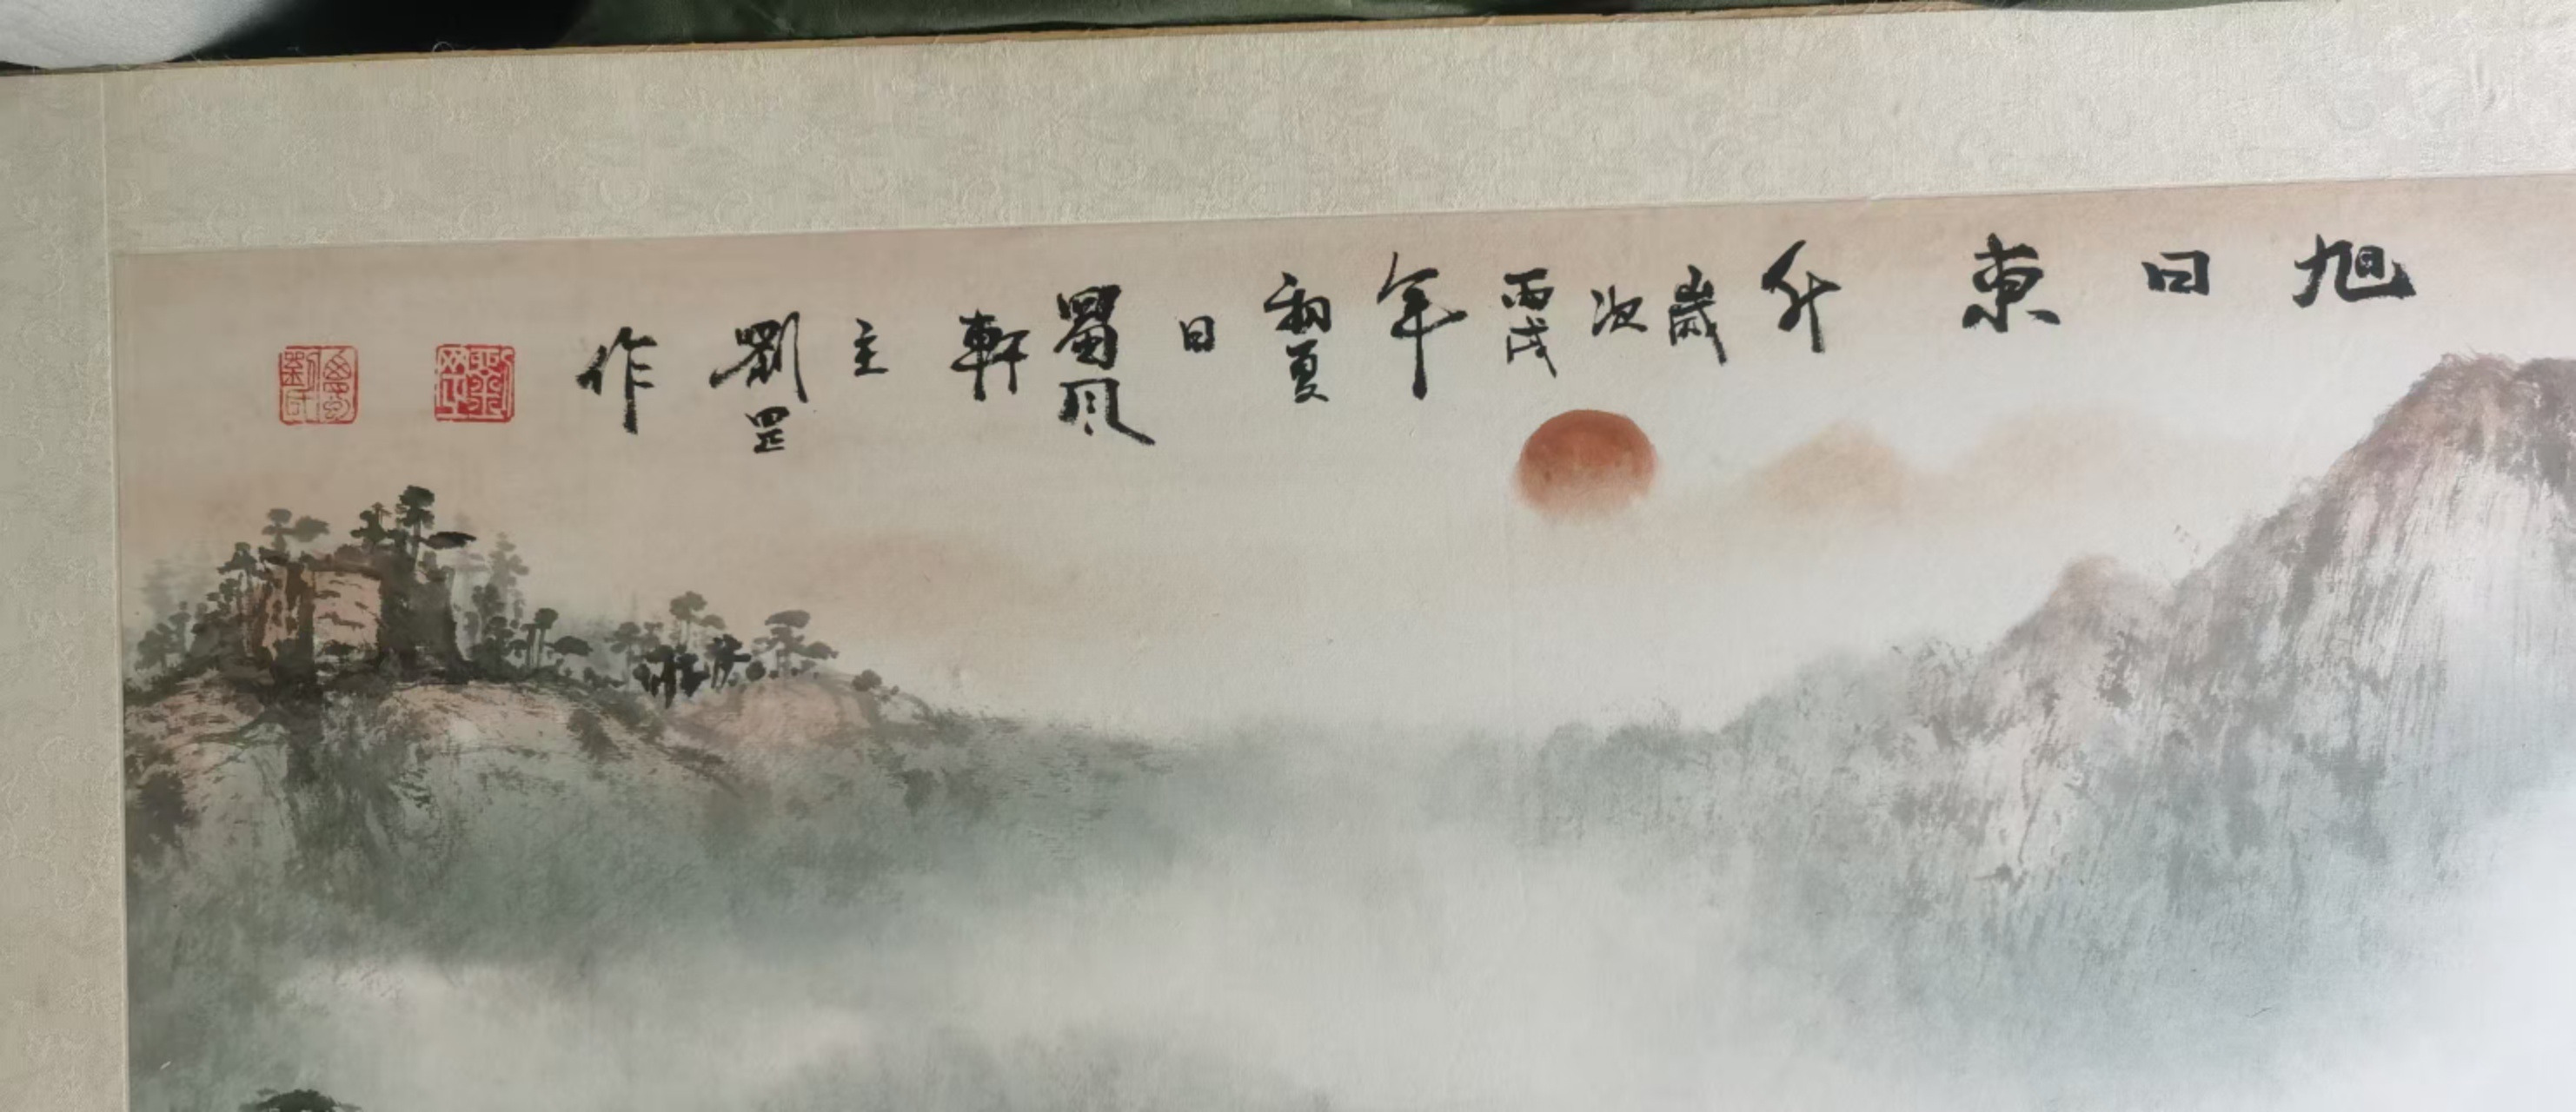 旭日東升歲次丙戌年初夏日蜀風軒主劉罡作